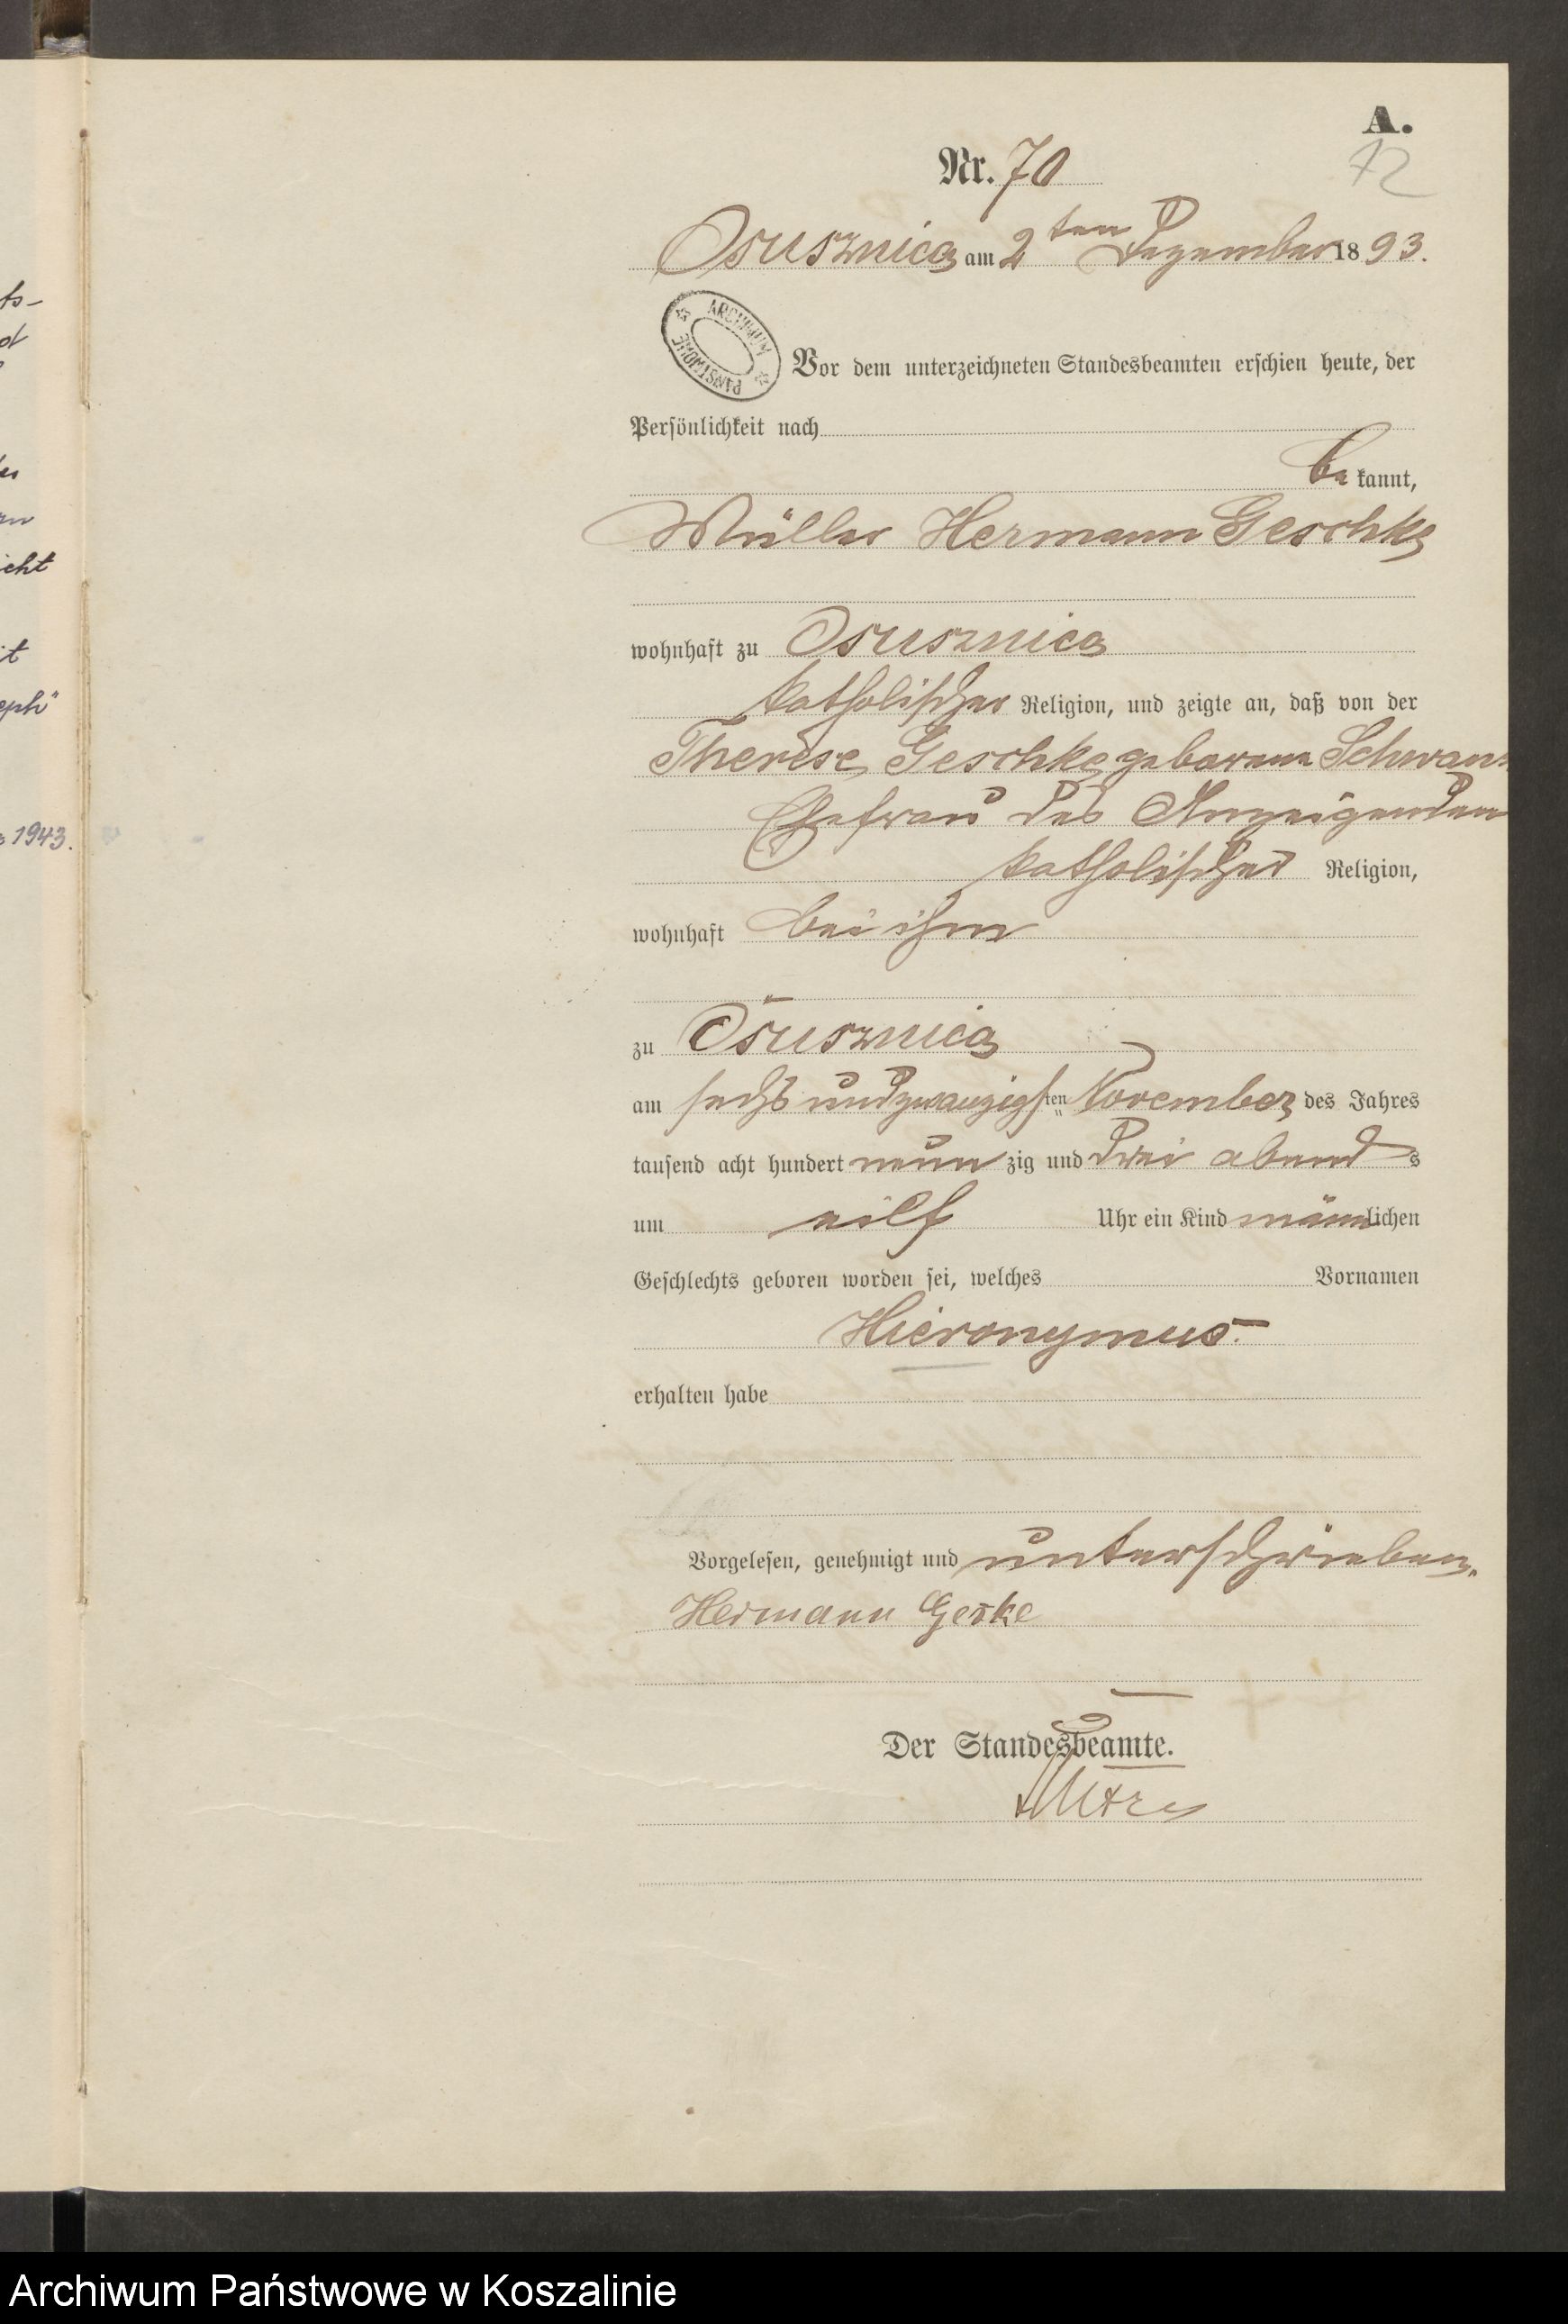 ts-
d
cht
it
eph"
1943.
A.
72
Nr. 70
Osusznica am 2ten Dezember 1893.
ARCHIWUM PAŃSTWOWE
Vor dem unterzeichneten Standesbeamten erschien heute, der
Persönlichkeit nach
be kannt,
Müller Hermann Geschke
wohnhaft zu Osusznica
katholischer Religion, und zeigte an, daß von der
Therese Geschke geborene
Ehefrau des Anzeigenden
katholischer Religion,
wohnhaft bei ihm
zu Osusznica
am sechs und zwanzigsten November des Jahres
tausend acht hundert neun zig und drei abend s
um eilf Uhr ein Kind männlichen
Geschlechts geboren worden sei, welches Vornamen
Hieronymus
erhalten habe
Vorgelesen, genehmigt und unterschrieben.
Hermann Geske
Der Standesbeamte.
Archiwum Państwowe w Koszalinie